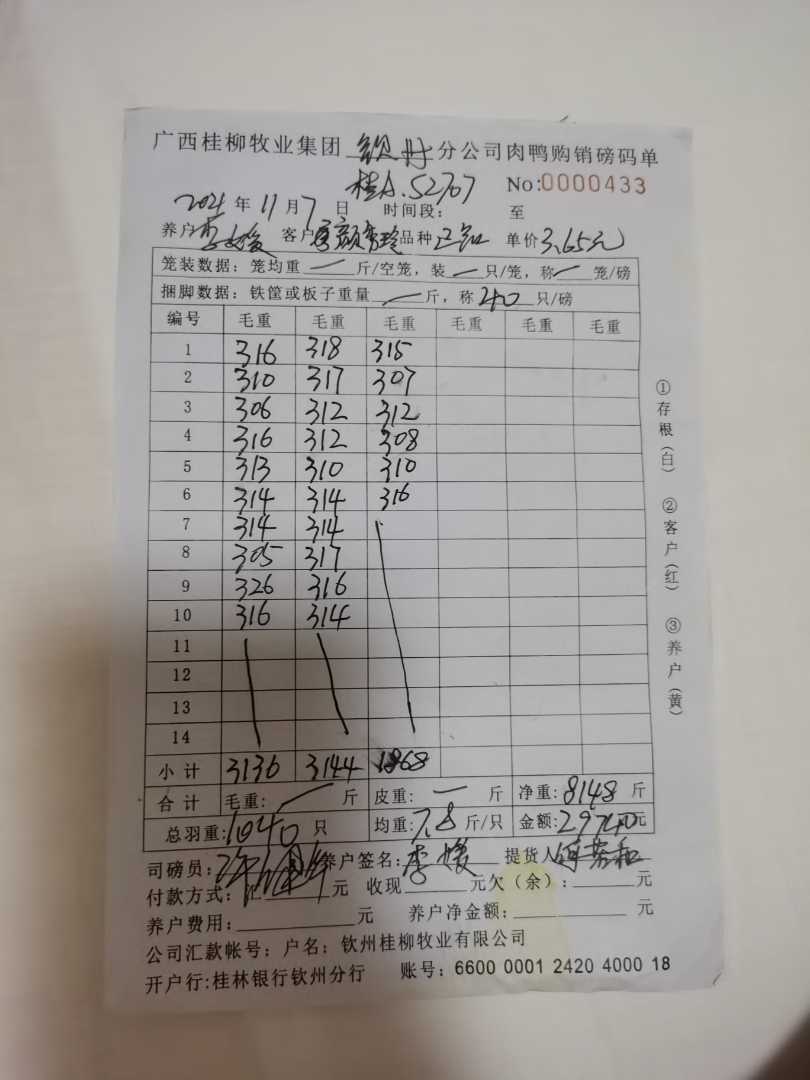 广西桂柳牧业集团 钦州 分公司肉鸭购销磅码单
桂A.52707 No:0000433
2021 年 11 月 7 日 时间段: 至
养户 李媛 客户 品种 正品 单价 3.65元
笼装数据: 笼均重 — 斤/空笼, 装 — 只/笼, 称 — 笼/磅
捆脚数据: 铁筐或板子重量 — 斤, 称 40 只/磅
编号 毛重 毛重 毛重 毛重 毛重 毛重
1 316 318 315
2 310 317 307
3 306 312 312
4 316 312 308
5 313 310 310
6 314 314 316
7 314 314
8 305 317
9 326 316
10 316 314
11
12
13
14
小计 3136 3144 1868
合计 毛重: — 斤 皮重: — 斤 净重: 8148 斤
总羽重: 1040 只 均重: 7.8 斤/只 金额: 29740元
司磅员: 养户签名: 李媛 提货人
付款方式: 汇 元 收现 元欠(余): 元
养户费用: 元 养户净金额: 元
公司汇款帐号: 户名: 钦州桂柳牧业有限公司
开户行:桂林银行钦州分行 账号: 6600 0001 2420 4000 18
①存根(白) ②客户(红) ③养户(黄)